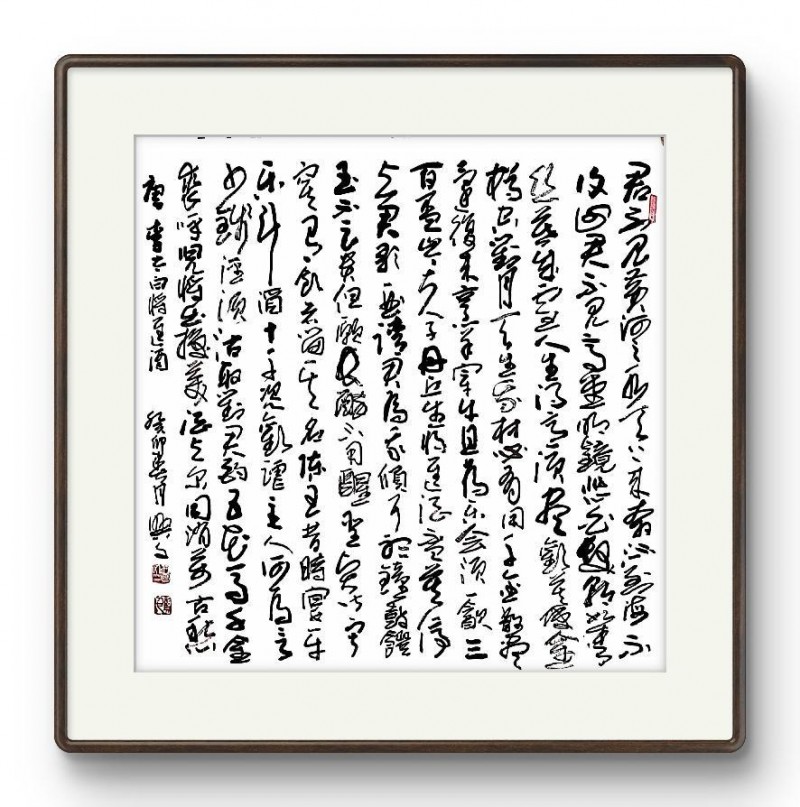 君不见黄河之水天上来奔流到海不
復回君不见高堂明鏡悲白髮朝如青
丝暮成雪人生得意须盡歡莫使金
樽空對月天生我材必有用千金散盡
還復来烹羊宰牛且為乐会须一飲三
百盃岑夫子丹丘生将進酒盃莫停
与君歌一曲請君為我傾耳听鐘鼓饌
玉不足贵但願长醉不用醒圣贤皆寂
寞惟有飲者留其名陈王昔時宴平
乐斗酒十千恣歡謔主人何為言
少錢徑须沽取對君酌五花马千金
裘呼兒将出換美酒与尔同消万古愁
唐李太白将進酒 癸卯春月